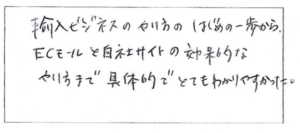 輸入ビジネスのやり方のはじめの一歩から、
ECモールと自社サイトの効果的な
やり方まで具体的でとてもわかりやすかった。